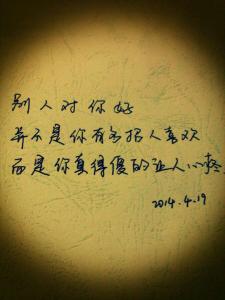 别人对你好
并不是你有多招人喜欢
而是你真得傻的让人心疼
2014.4.19